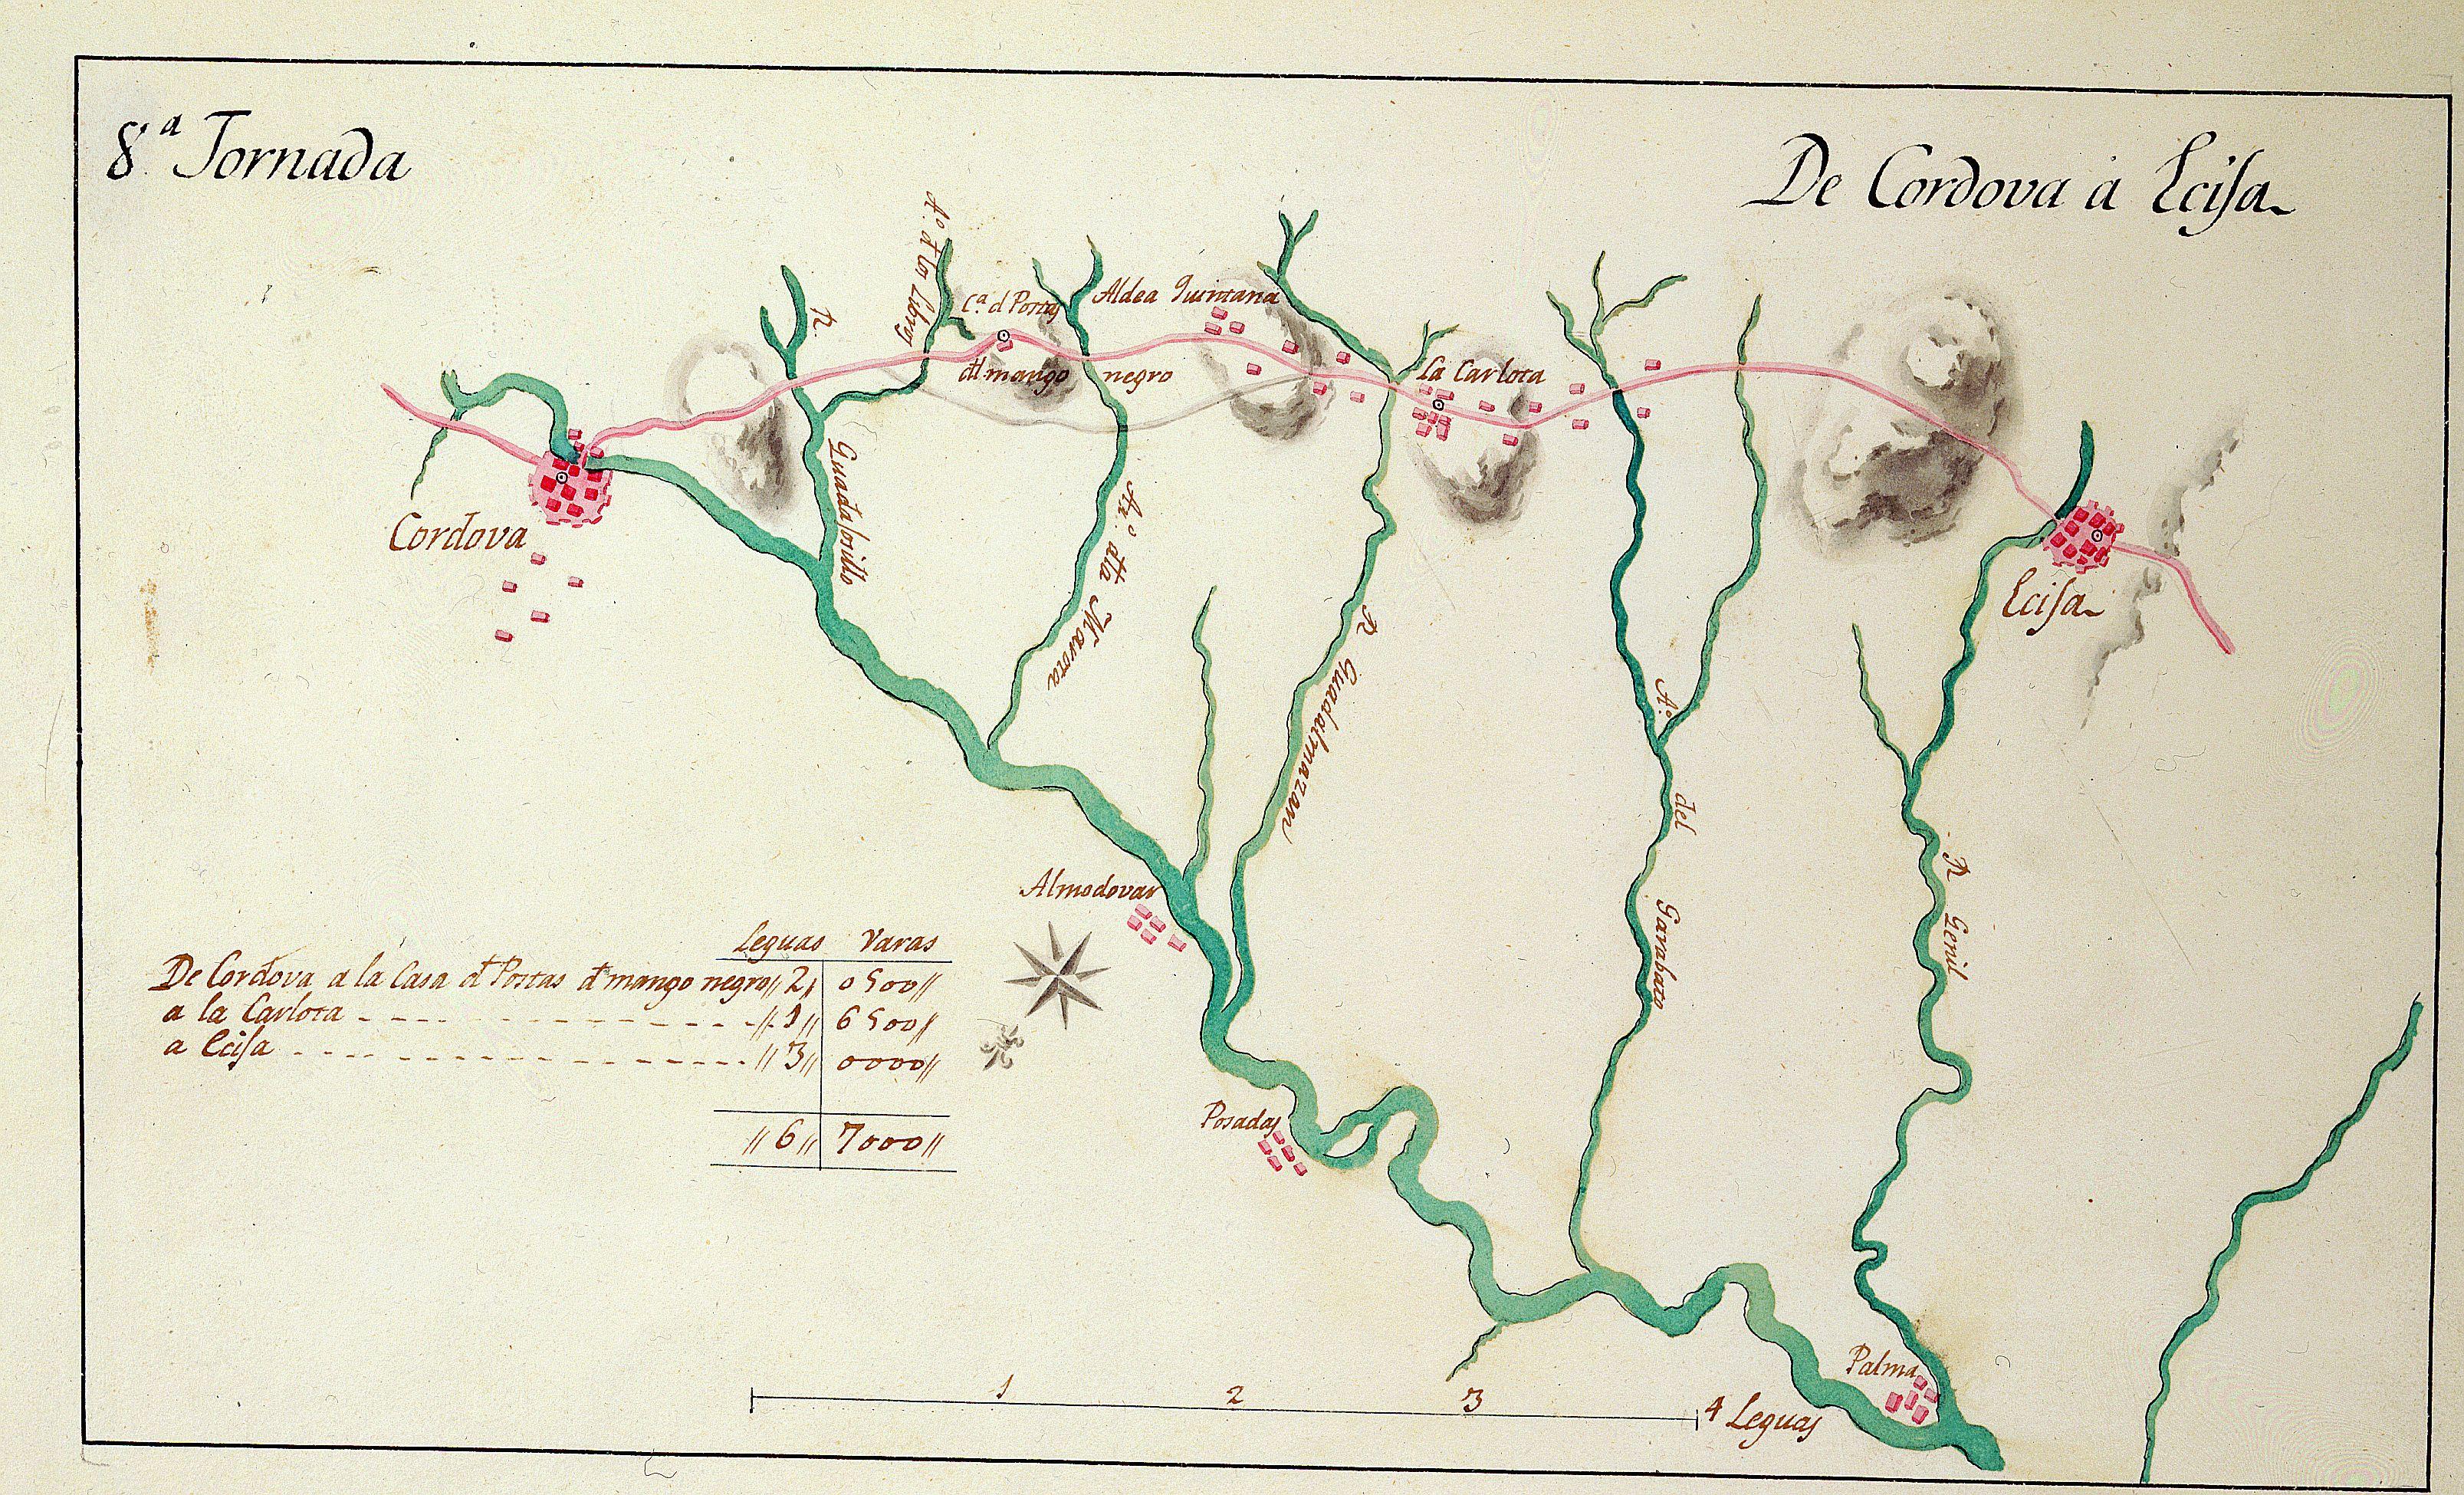 8.ª Jornada
De Cordova a Ecisa
A.º d los Libros
R.
Guadajosillo
C.ª d Postas
dl mango negro
Aldea Quintana
La Carlota
Cordova
Ecisa
A.º dla Marota
R Guadalmazan
A.º del Garabato
R Genil
Almodovar
Posadas
Palma
Leguas Varas
De Cordova a la Casa d Postas d mango negro,, 2,, 0500,,
a la Carlota ,,1,, 6500,,
a Ecisa ,,3,, 0000,,
,,6,, 7000,,
1 2 3 4 Leguas